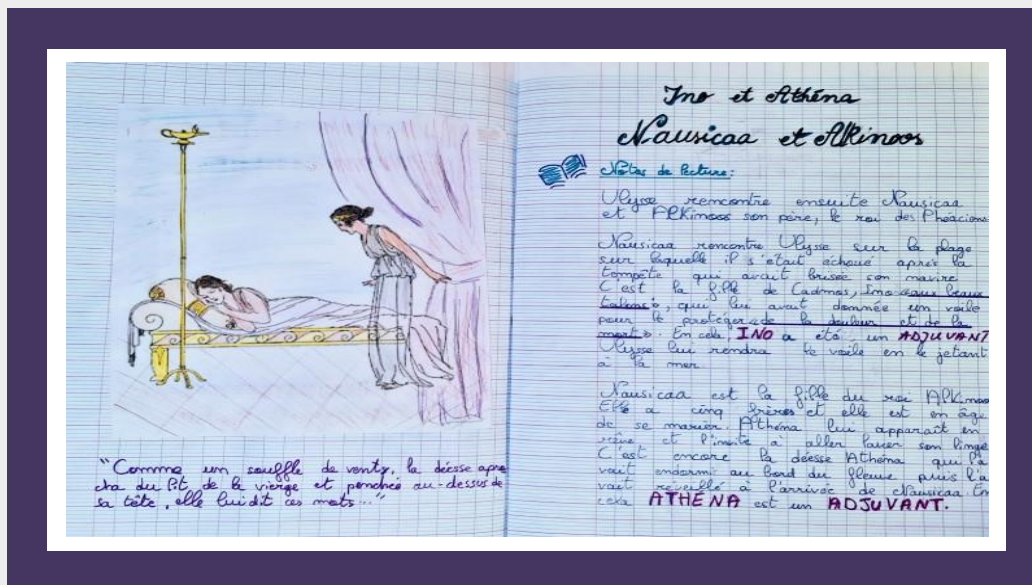 "Comme un souffle de vent, la déesse appro
cha du lit de la vierge et penchée au-dessus de
sa tête, elle lui dit ces mots..."
Ino et Athéna
Nausicaa et Alkinoos
Notes de lecture:
Ulysse rencontre ensuite Nausicaa
et Alkinoos son père, le roi des Phéaciens
Nausicaa rencontre Ulysse sur la plage
sur laquelle il s'était échoué après la
tempête qui avait brisée son navire.
C'est la fille de Cadmos, Ino «aux beaux
talons», qui lui avait donnée un voile
pour le protéger «de la douleur et de la
mort». En cela INO a été un ADJUVANT
Ulysse lui rendra le voile en le jetant
à la mer.
Nausicaa est la fille du roi Alkinoos
Elle a cinq frères et elle est en âge
de se marier. Athéna lui apparaît en
rêve et l'invite à aller laver son linge
C'est encore la déesse Athéna qui l'a
vait endormi au bord du fleuve puis l'a
vait réveillé à l'arrivée de Nausicaa. En
cela ATHÉNA est un ADJUVANT.